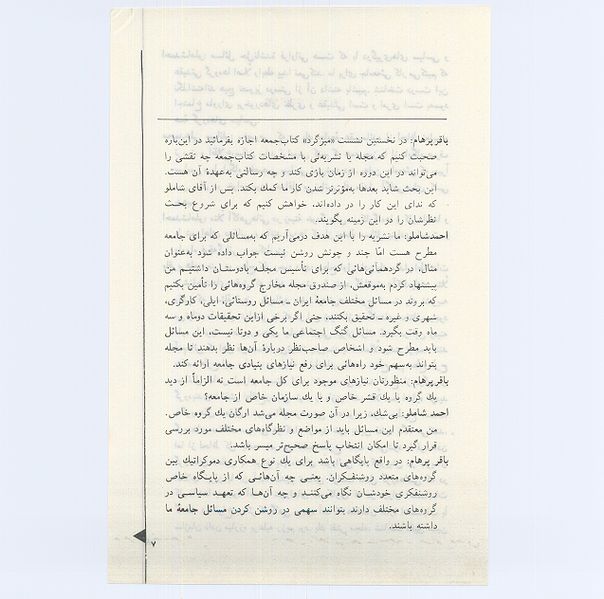 باقرپرهام: در نخستین نشست «میزگرد» کتاب‌جمعه اجازه بفرمائید در این‌باره
صحبت کنیم که مجله یا نشریه‌ئی با مشخصات کتاب‌جمعه چه نقشی را
می‌تواند در این دوره از زمان بازی کند و چه رسالتی به‌عهدهٔ آن هست.
این بحث شاید بعدها به‌مؤثرتر شدن کار ما کمك بکند. پس از آقای شاملو
که ندای این کار را در داده‌اند، خواهش کنیم که برای شروع بحث
نظرشان را در این زمینه بگویند.
احمدشاملو: ما نشریه را با این هدف درمی‌آریم که به‌مسائلی که برای جامعه
مطرح هست امّا چند و چونش روشن نیست جواب داده شود به‌عنوان
مثال، در گردهمائی‌هائی که برای تأسیس مجلـه بادوستـان داشتیـم من
پیشنهاد کردم به‌موقعش، از صندوق مجله مخارج گروه‌هائی را تأمین بکنیم
که بروند در مسائل مختلف جامعهٔ ایران ـ مسائل روستائی، ایلی، کارگری،
شهری و غیره ـ تحقیق بکنند، حتی اگر برخی ازاین تحقیقات دوماه و سه
ماه وقت بگیرد. مسائل گنگ اجتماعی ما یکی و دوتا نیست، این مسائل
باید مطرح شود و اشخاص صاحب‌نظر دربارهٔ آن‌ها نظر بدهند تا مجله
بتواند به‌سهم خود راه‌هائی برای رفع نیازهای بنیادی جامعه ارائه کند.
باقرپرهام: منظورتان نیازهای موجود برای کل جامعه است نه الزاماً از دید
یك گروه یا یك قشر خاص و یا یك سازمان خاص از جامعه؟
احمد شاملو: بی‌شك، زیرا در آن صورت مجله می‌شد ارگان یك گروه خاص.
من معتقدم این مسائل باید از مواضع و نظرگاه‌های مختلف مورد بررسی
قرار گیرد تا امکان انتخاب پاسخ صحیح‌تر میسر باشد.
باقر پرهام: در واقع پایگاهی باشد برای یك نوع همکاری دموکراتیك بین
گروه‌های متعدد روشنفکران. یعنـی چه آن‌هائـی که از پایـگاه خاص
روشنفکری خودشـان نگاه می‌کننـد و چه آن‌هـا که تعهـد سیاسـی در
گروه‌های مختلف دارند بتوانند سهمی در روشن کردن مسائل جامعهٔ ما
داشته باشند.
۷